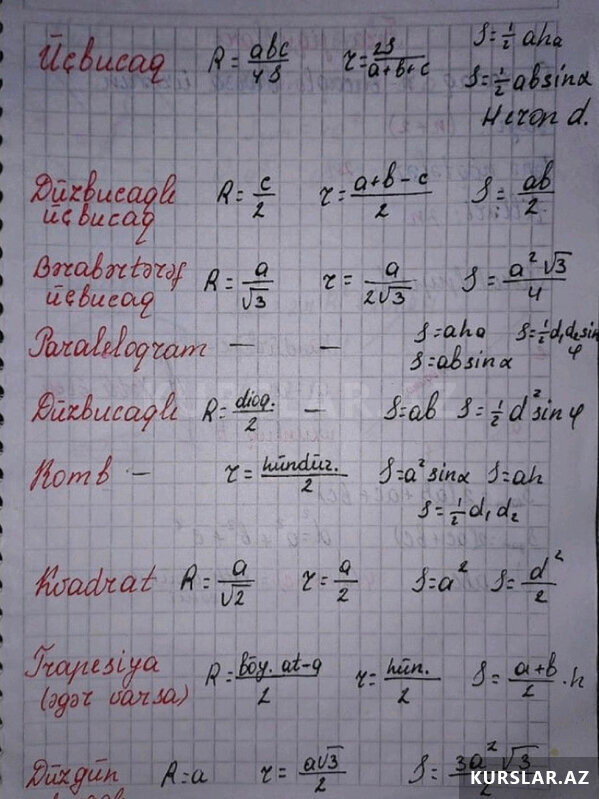 Üçbucaq R = abc/4S r = 2S/a+b+c S = 1/2 aha
S = 1/2 absinα
Heron d.
Düzbucaqlı üçbucaq R = c/2 r = a+b-c/2 S = ab/2
Bərabərtərəf üçbucaq R = a/√3 r = a/2√3 S = a²√3/4
Paralelogram — — S = aha S = 1/2 d₁d₂ sin φ
S = absinα
Düzbucaqlı R = diaq./2 — S = ab S = 1/2 d² sin φ
Romb — r = hündür./2 S = a² sinα S = ah
S = 1/2 d₁ d₂
Kvadrat R = a/√2 r = a/2 S = a² S = d²/2
Trapesiya (əgər varsa) R = böy. at-q/2 r = hün./2 S = a+b/2 · h
Düzgün R = a r = a√3/2 S = 3a²√3/2
KURSLAR.AZ